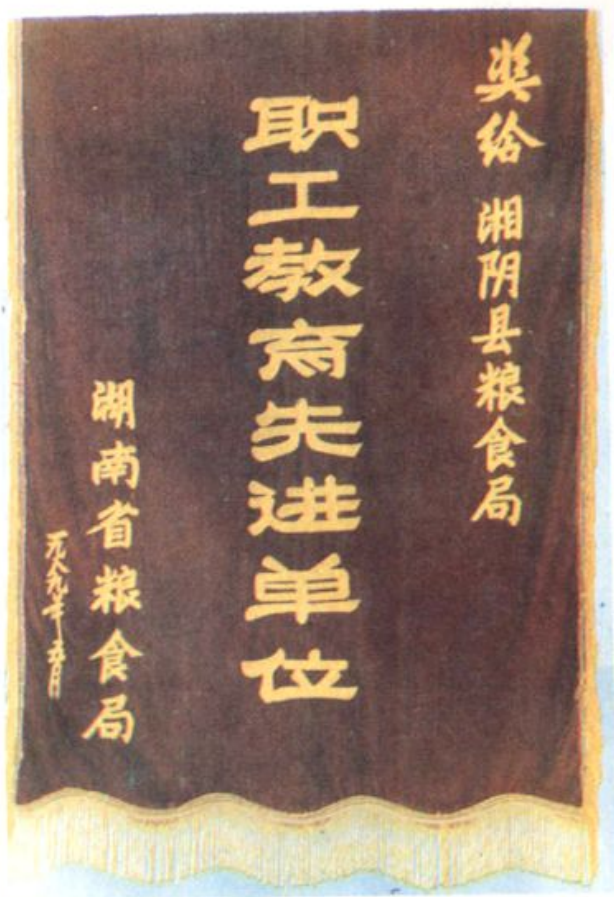 奖给 湘阴县粮食局
职工教育先进单位
湖南省粮食局
一九八九年五月